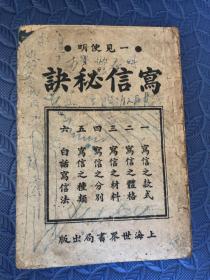 ●一見便明●
寫信秘訣
一 寫信之款式
二 寫信之體格
三 寫信之材料
四 寫信之分別
五 寫信之種類
六 白話寫信法
上海世界書局出版